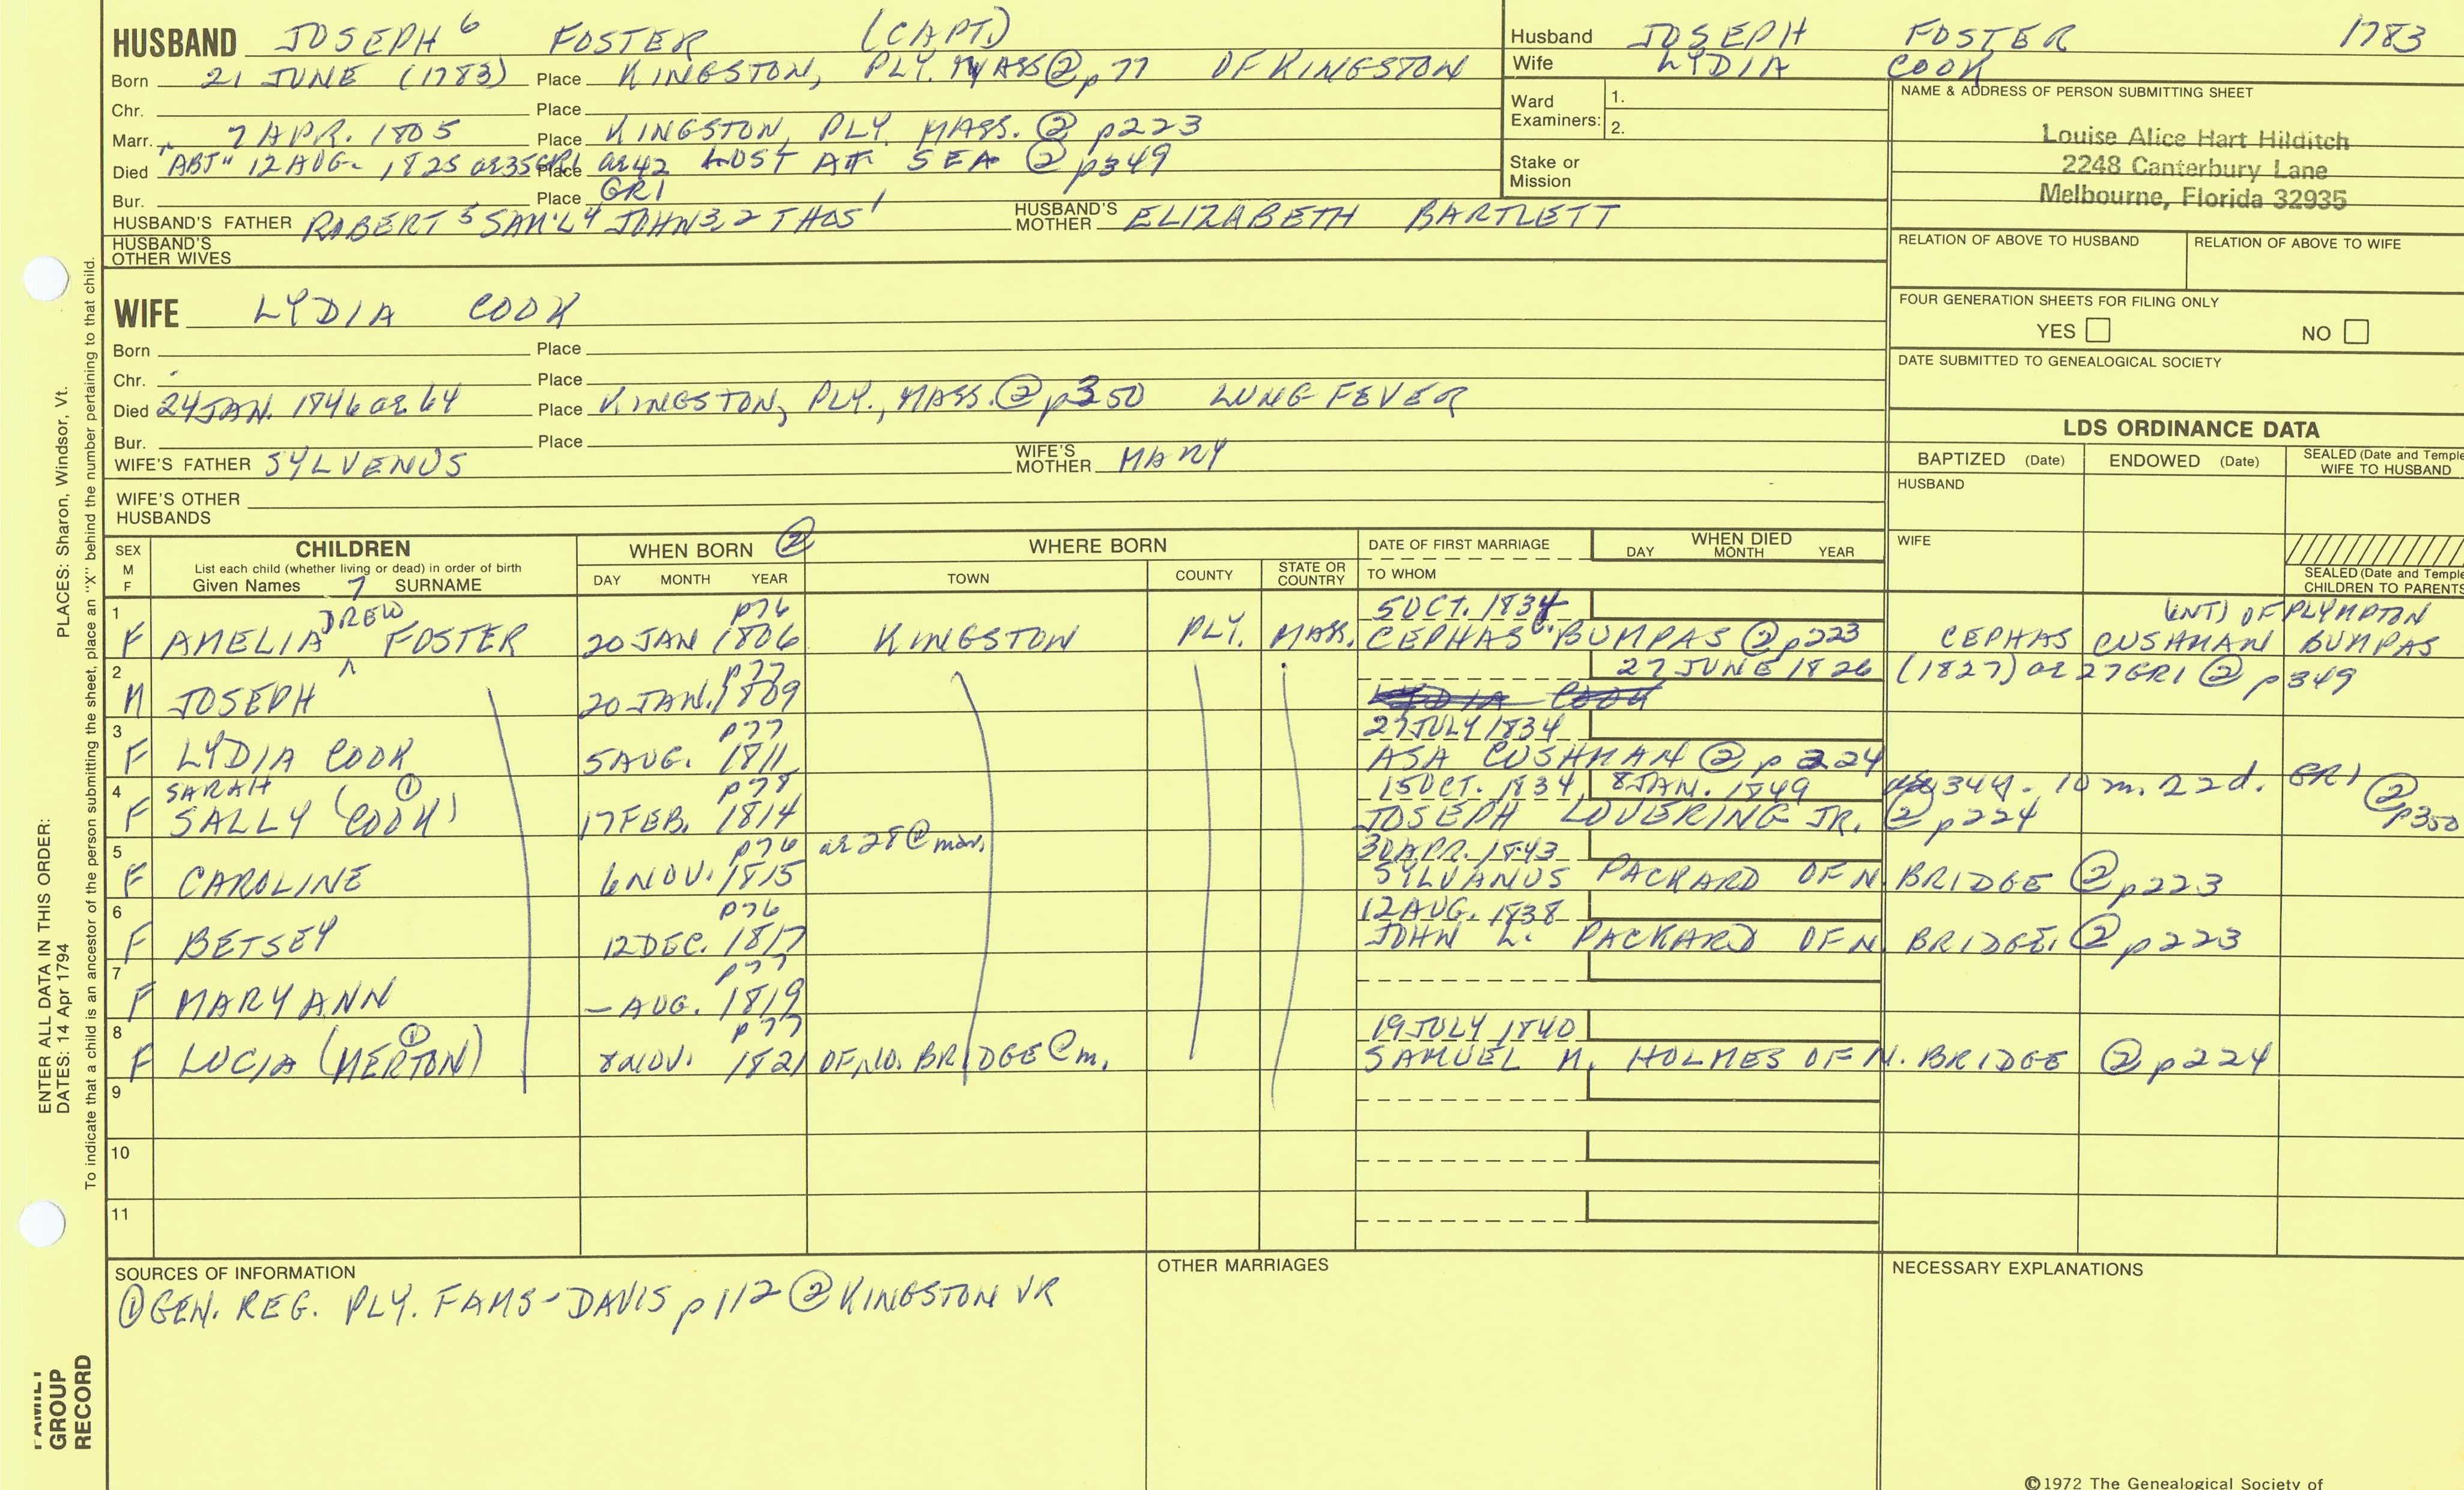 HUSBAND JOSEPH 6 FOSTER (CAPT.)
Born 21 JUNE (1783) Place KINGSTON, PLY. MASS ② p77 OF KINGSTON
Chr. Place
Marr. 7 APR. 1805 Place KINGSTON, PLY. MASS. ② p223
Died "ABT" 12 AUG. 1825 ae 35 GR1 Place ae 42 LOST AT SEA ② p349
Bur. Place GR1
HUSBAND'S FATHER ROBERT 5 SAM'L 4 JOHN 3,2 THOS 1 HUSBAND'S MOTHER ELIZABETH BARTLETT
HUSBAND'S OTHER WIVES
Husband JOSEPH FOSTER 1783
Wife LYDIA COOK
Ward Examiners: 1.
2.
Stake or Mission
NAME & ADDRESS OF PERSON SUBMITTING SHEET
Louise Alice Hart Hilditch
2248 Canterbury Lane
Melbourne, Florida 32935
RELATION OF ABOVE TO HUSBAND RELATION OF ABOVE TO WIFE
FOUR GENERATION SHEETS FOR FILING ONLY
YES NO
DATE SUBMITTED TO GENEALOGICAL SOCIETY
WIFE LYDIA COOK
Born Place
Chr. Place
Died 24 JAN. 1846 ae 64 Place KINGSTON, PLY., MASS. ② p350 LUNG FEVER
Bur. Place
WIFE'S FATHER SYLVENUS WIFE'S MOTHER MARY
WIFE'S OTHER HUSBANDS
LDS ORDINANCE DATA
BAPTIZED (Date) ENDOWED (Date) SEALED (Date and Temple WIFE TO HUSBAND
HUSBAND
WIFE
SEALED (Date and Temple CHILDREN TO PARENTS
SEX M F CHILDREN WHEN BORN ② WHERE BORN DATE OF FIRST MARRIAGE WHEN DIED
List each child (whether living or dead) in order of birth
Given Names 7 SURNAME DAY MONTH YEAR TOWN COUNTY STATE OR COUNTRY TO WHOM DAY MONTH YEAR
1 DREW p76 5 OCT. 1834 (INT) OF PLYMPTON
F AMELIA ^ FOSTER 20 JAN 1806 KINGSTON PLY. MASS. CEPHAS C. BUMPAS ② p223 CEPHAS CUSHMAN BUMPAS
2 p77 27 JUNE 1826 (1827) ae 27 GR1 ② p349
M JOSEPH 20 JAN. 1809
3 p77 27 JULY 1834
F LYDIA COOK 5 AUG. 1811 ASA CUSHMAN ② p224
4 SARAH ① p78 15 OCT. 1834 8 JAN. 1849 34y. 10 m. 22 d. GR1 ② p350
F SALLY (COOK) 17 FEB. 1814 JOSEPH LOVERING JR. ② p224
5 p76 ae 28 @ mar. 30 APR. 1843
F CAROLINE 6 NOV. 1815 SYLVANUS PACKARD OF N. BRIDGE ② p223
6 p76 12 AUG. 1838
F BETSEY 12 DEC. 1817 JOHN L. PACKARD OF N. BRIDGE. ② p223
7 p77
F MARY ANN – AUG. 1819
8 ① p77 19 JULY 1840
F LUCIA (MERTON) 8 NOV. 1821 OF NO. BRIDGE @ m. SAMUEL M. HOLMES OF N. BRIDGE ② p224
9
10
11
SOURCES OF INFORMATION
① GEN. REG. PLY. FAMS - DAVIS p112 ② KINGSTON VR
OTHER MARRIAGES
NECESSARY EXPLANATIONS
©1972 The Genealogical Society of
PLACES: Sharon, Windsor, Vt.
ENTER ALL DATA IN THIS ORDER:
DATES: 14 Apr 1794
To indicate that a child is an ancestor of the person submitting the sheet, place an "X" behind the number pertaining to that child.
FAMILY GROUP RECORD